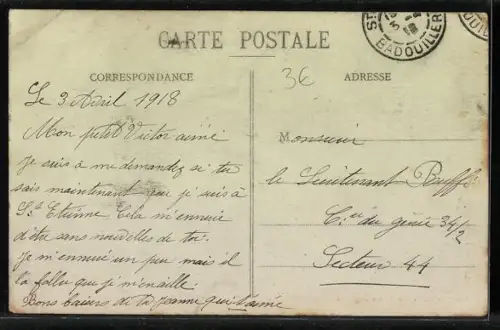 CARTE POSTALE
CORRESPONDANCE
ADRESSE
36
BADOUILLER
Le 3 Avril 1918
Mon petit Victor aimé
Je suis à me demandez si tu
sais maintenant que je suis à
St Etienne Cela m'ennuie
d'être sans nouvelles de toi.
Je m'ennuie un peu mais il
la fallu que je m'enaille.
Bons baisers de ta Jeanne qui t'aime
Monsieur
le Lieutenant
Cie du génie 34/2
Secteur 44